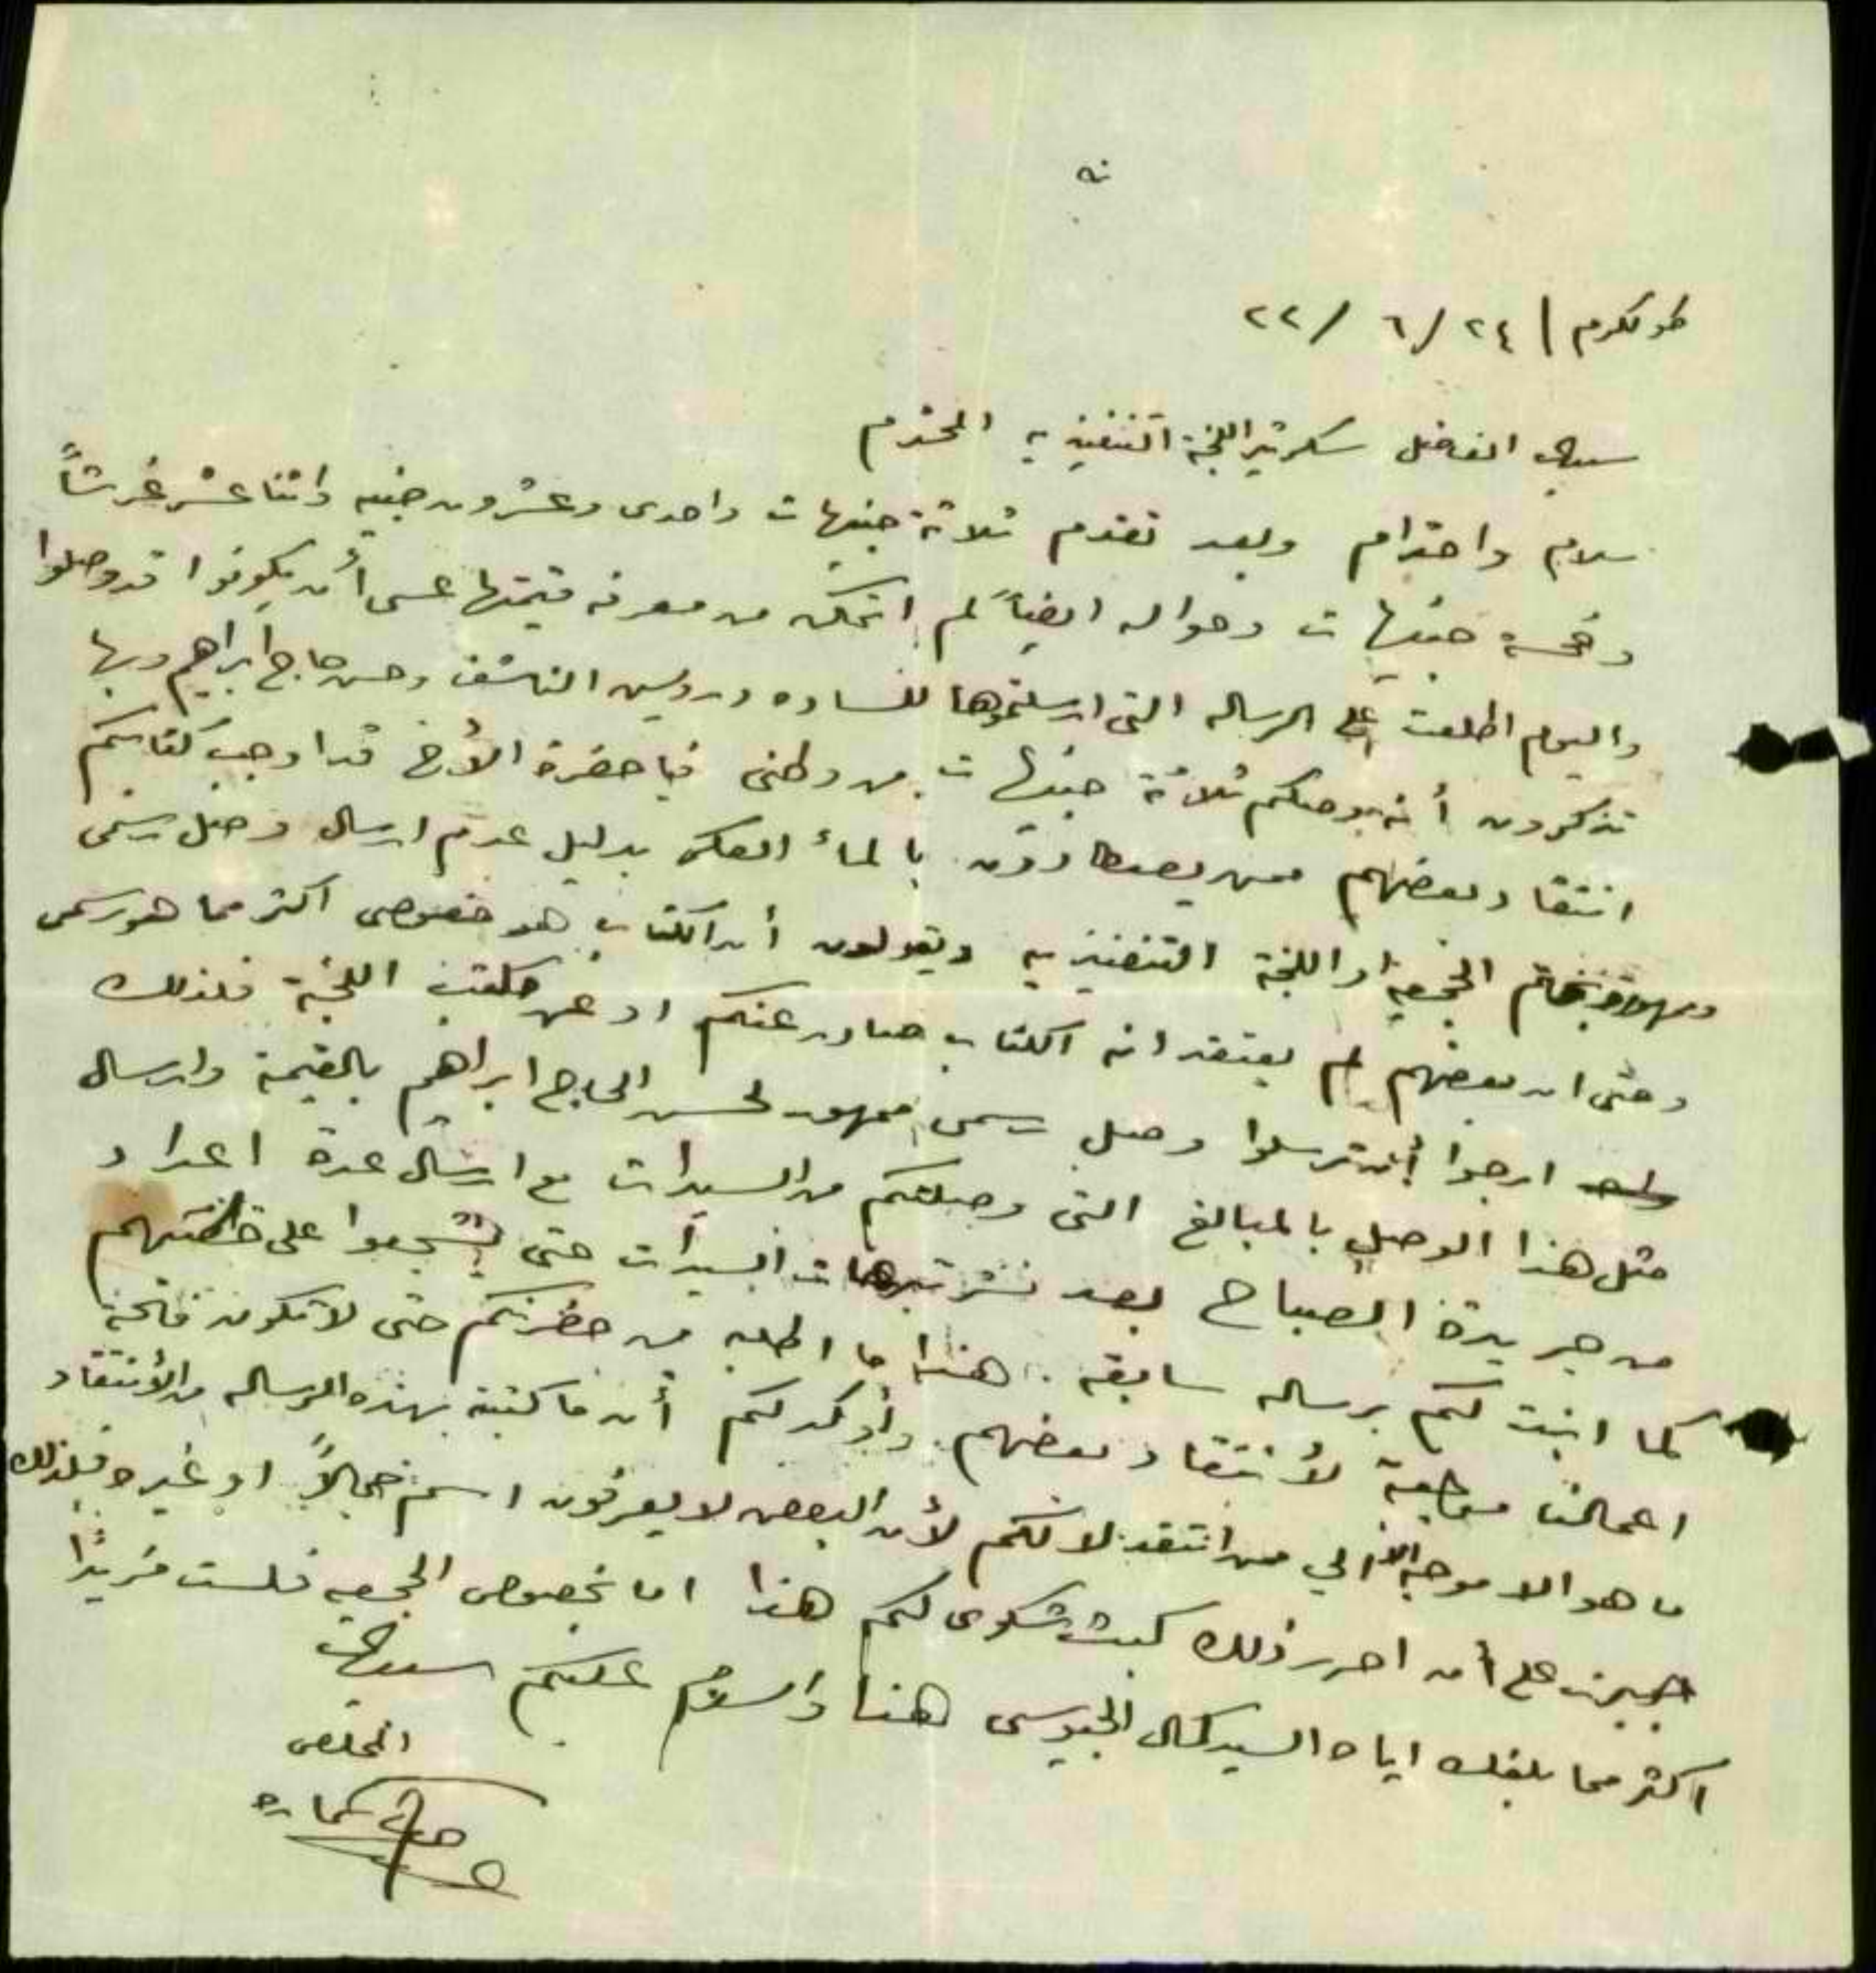 طولكرم / ٢٤ / ٦ / ٢٢
سيدي الفاضل سكرتير اللجنة التنفيذيه المحترم
سلام واحترام وبعد تقدم ثلاثة جنيهات واحدى وعشرون جنيه واثنا عشر غرشاً
وخمسة جنيهات وحواله ايضاً لم اتمكن من معرفة قيمتها عسى أن يكونوا قد وصلوا
واليوم اطلعت على الرساله التي ارسلتموها للساده درويش الناشف وحسن حاج ابراهيم وبها
تذكرون أنه وصلكم ثلاثة جنيهات من وطني فيا حضرة الأخ قد اوجب كتابكم
انتقاد بعضهم ممن يصطادون بالماء العكر بدليل عدم ارسال وصل رسمي
بختم الجمعية او اللجنة التنفيذيه ويقولون أن الكتاب هو خصوصي اكثر مما هو رسمي
وحتى ان بعضهم لم يعتقد انه الكتاب صادر عنكم او عن مكتب اللجنة فلذلك
ارجوا أن ترسلوا وصل رسمي ممهور لحسن الحاج ابراهيم بالقيمة وارسال
مثل هذا الوصل بالمبالغ التي وصلتكم من السيدات مع ارسال عدة اعداد
من جريدة الصباح بعد نشر تبرعات السيدات حتى يتشجعوا على خدمتهم
كما انبت لكم برساله سابقه . هذا ما اطلبه من حضرتكم حتى لا تكون فاتحة
اعمالنا موجبة لأنتقاد بعضهم . وأوكد لكم أن ما كتبته بهذه الرساله من الأنتقاد
ما هو الا موجه الي ممن انتقد لا لكم لأن البعض لا يعرفون اسم جمالاً او غيره فلذلك
على أن احرر ذلك كبث شكوى لكم هذا اما بخصوص الجمعيه فلست مزيداً
اكثر مما بلغك اياه السيد كمال الجيوسي هذا والسلام عليكم سيدي
المخلص